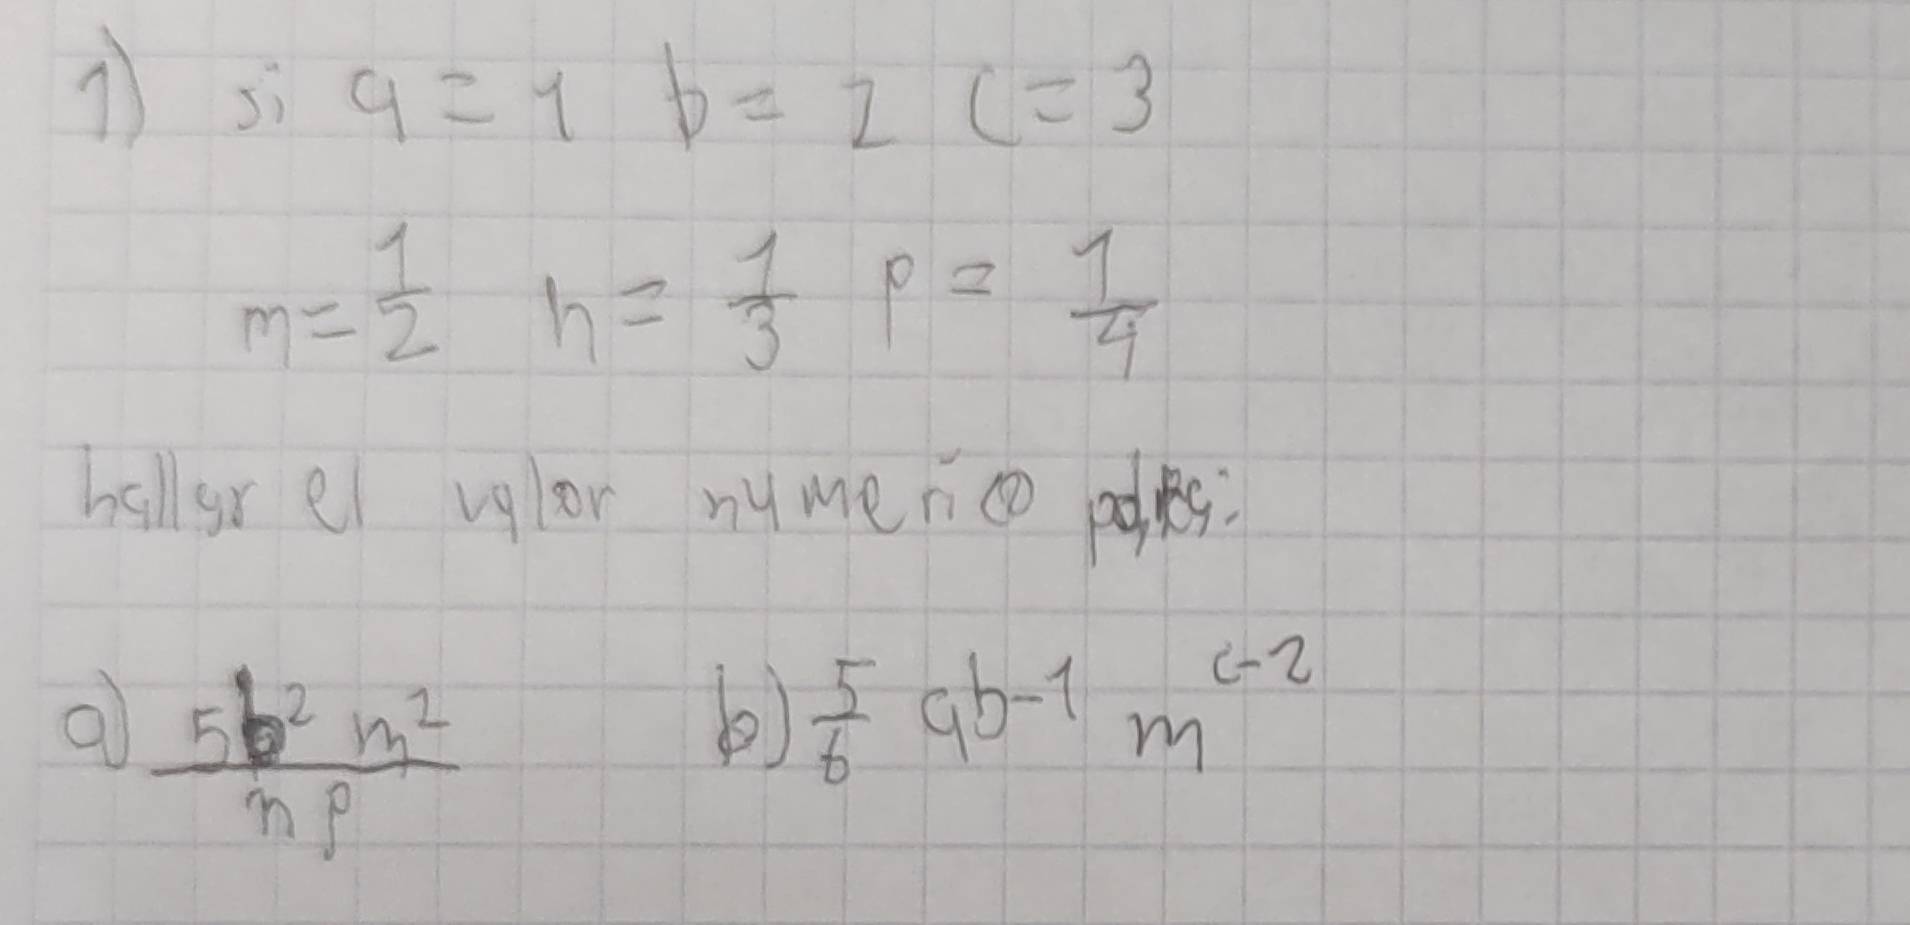 1) si a = 1 b = 2 c = 3
m = 1/2 n = 1/3 p = 1/4
hallar el valor numerico
a) 5b² m² / n p b) 5/6 ab-1 m^c-2